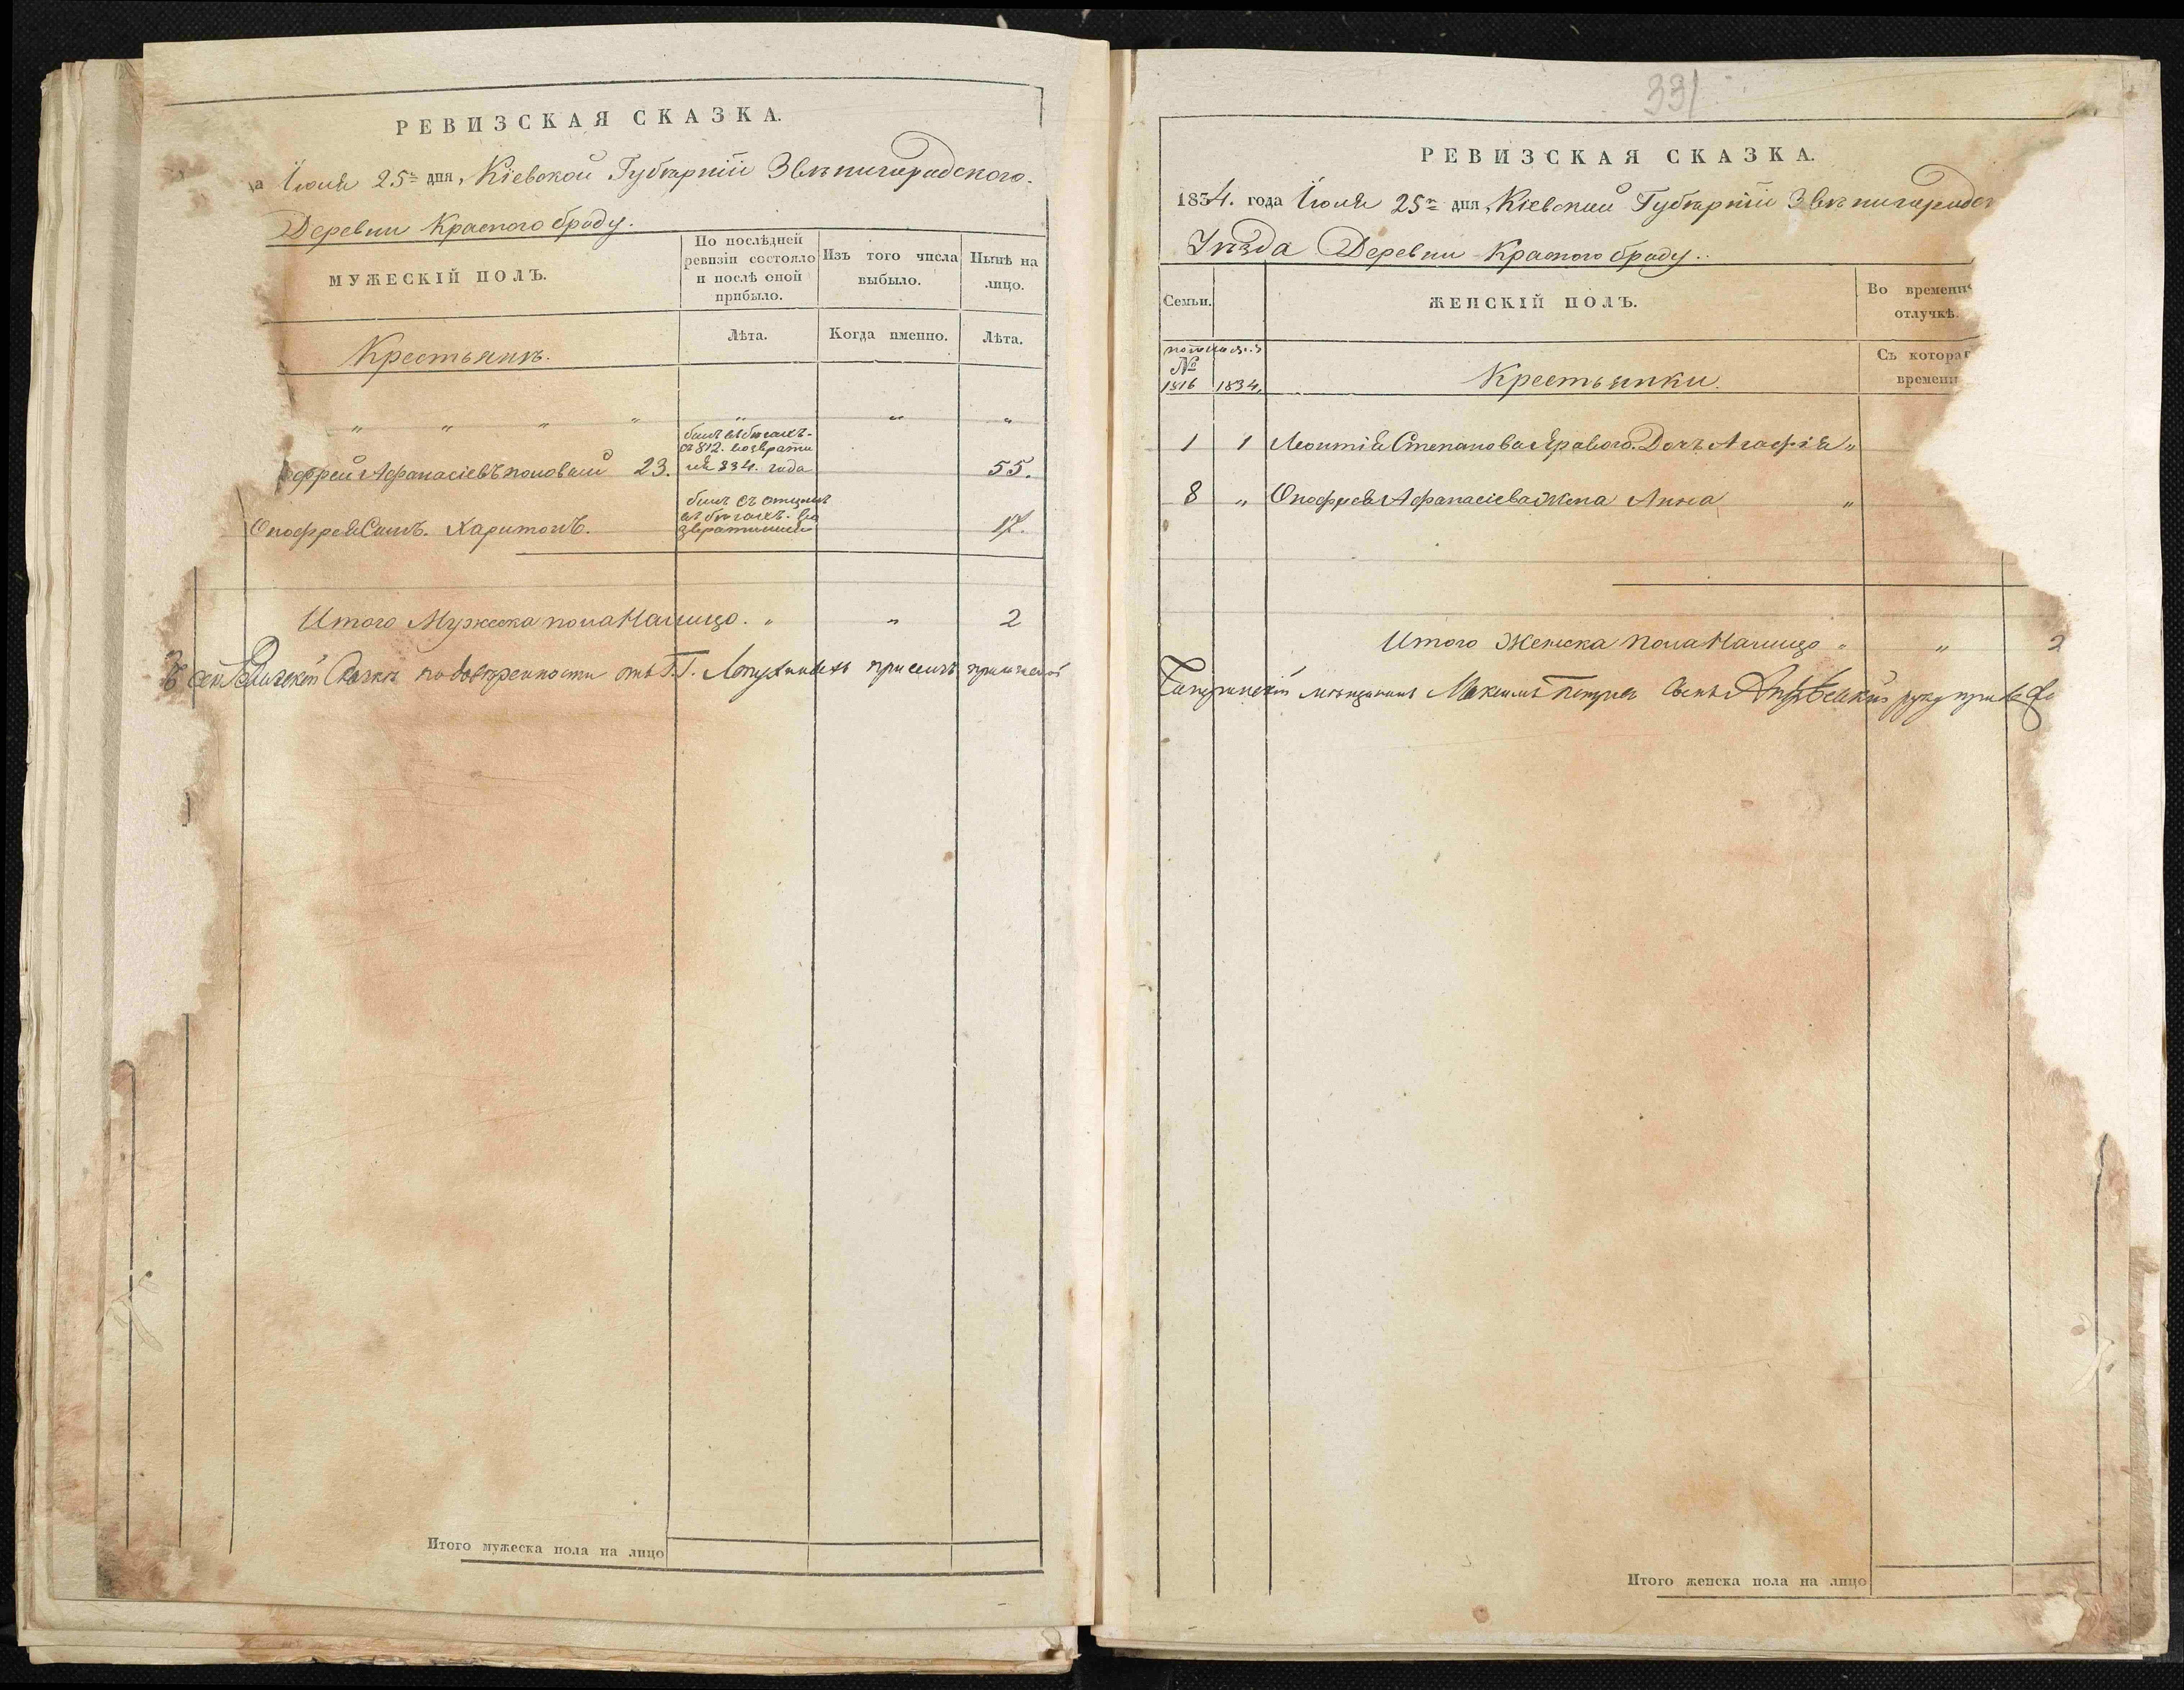 РЕВИЗСКАЯ СКАЗКА.
да Іюля 25го дня, Кіевской Губерніи Звѣнигородского
Деревни Красного броду.
МУЖЕСКІЙ ПОЛЪ.
По послѣдней ревизіи состояло и послѣ оной прибыло.
Изъ того числа выбыло.
Нынѣ на лицо.
Лѣта.
Когда именно.
Лѣта.
Крестьянъ.
„ „ „ „ „ „ „
былъ въ бѣгахъ
съ 812. возврати
офрей Афанасіевъ половый 23. ся 834. года 55.
былъ съ отцомъ
въ бѣгахъ. во
Онофрея Сынъ. Харитонъ. звратившися 17.
Итого Мужеска пола Налицо. „ „ 2
В сей Ревизской Сказки по довѣренности отъ Г.Г. Лопухиныхъ
Итого мужеска пола на лицо
331
РЕВИЗСКАЯ СКАЗКА.
1834. года Іюля 25го дня, Кіевской Губерніи Звѣнигородс
Уѣзда Деревни Красного броду.
Семьи.
ЖЕНСКІЙ ПОЛЪ.
Во временн
отлучкѣ.
№
1816 1834,
Крестьянки.
Съ котораг
времени
1 1 Леонтія Степанова Дочь Агафія „
8 „ Онофрея Афанасіева Жена Анна „
Итого Женска пола Налицо „ „ 2
мѣщанинъ Максимъ Петровъ Сынъ руку
Итого женска пола на лицо